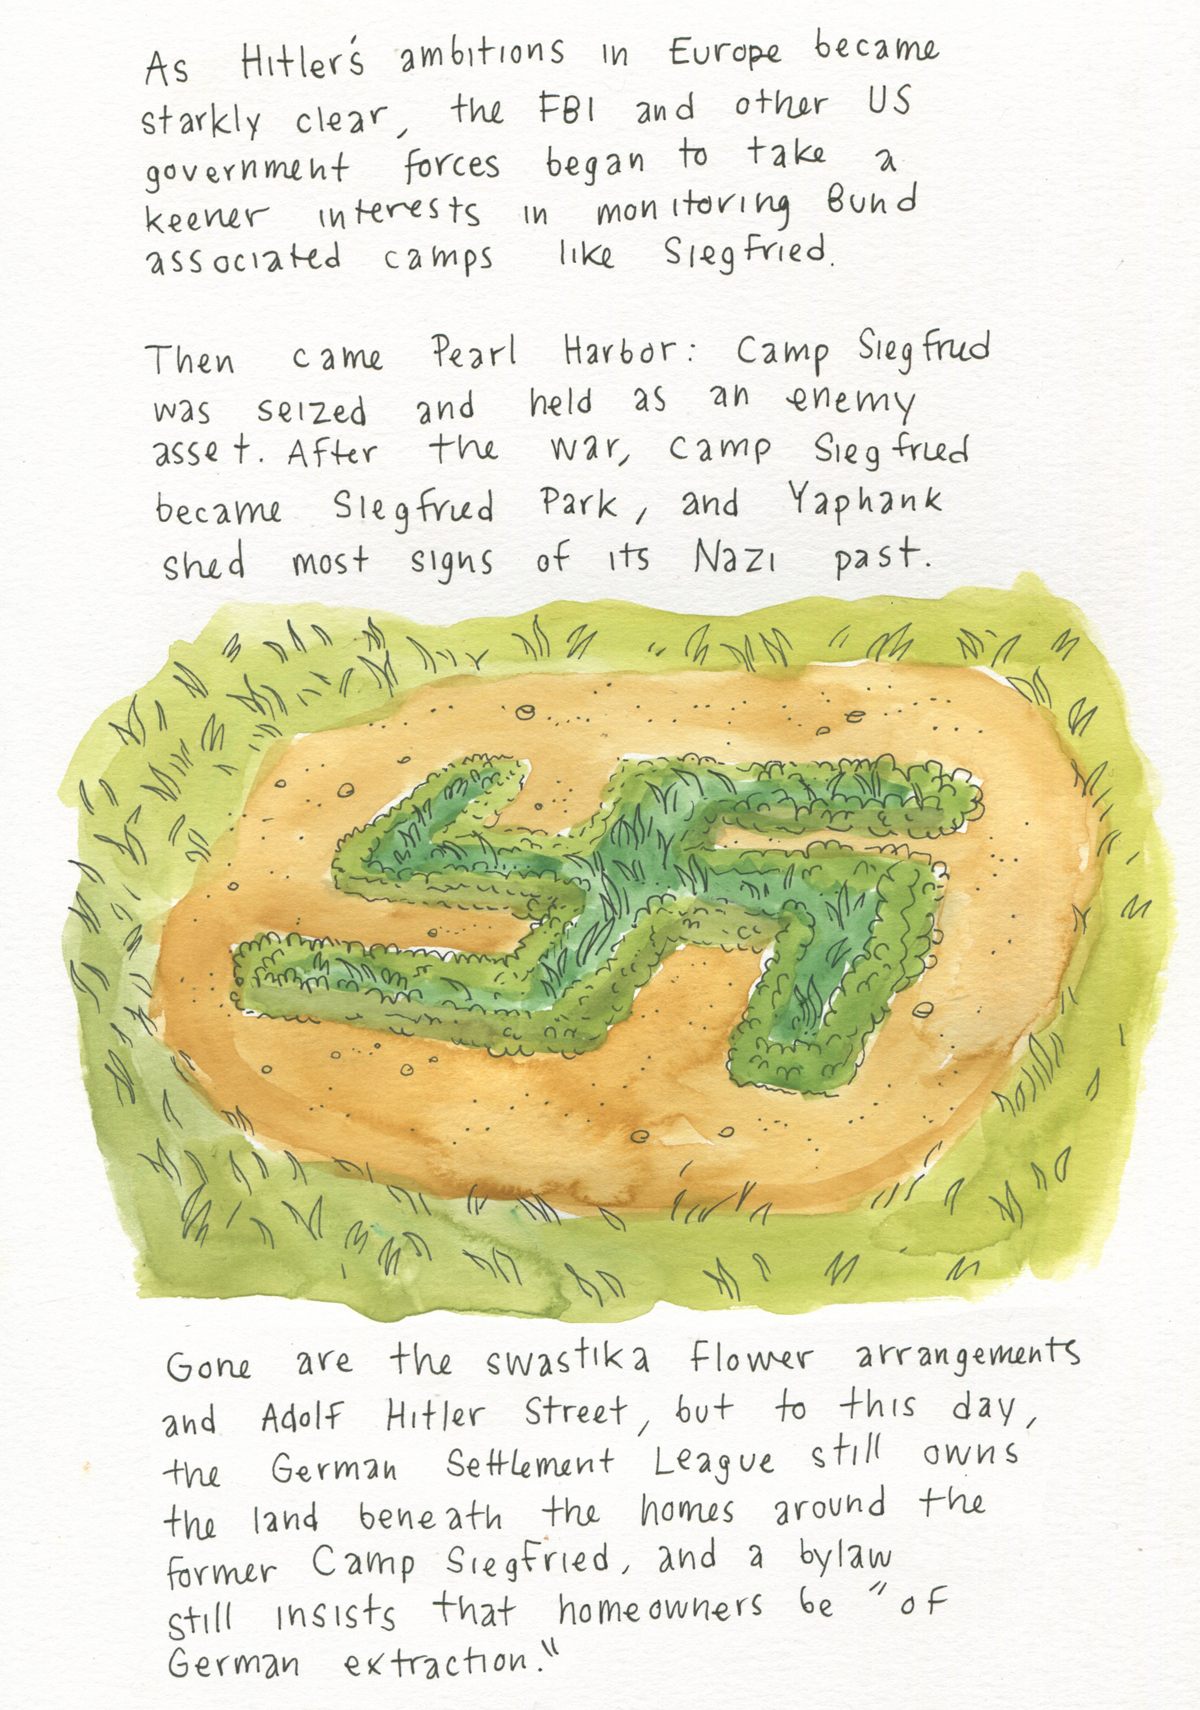 As Hitler's ambitions in Europe became
starkly clear, the FBI and other US
government forces began to take a
keener interests in monitoring Bund
associated camps like Siegfried.
Then came Pearl Harbor: Camp Siegfried
was seized and held as an enemy
asset. After the war, Camp Siegfried
became Siegfried Park, and Yaphank
shed most signs of its Nazi past.
Gone are the swastika flower arrangements
and Adolf Hitler Street, but to this day,
the German Settlement League still owns
the land beneath the homes around the
former Camp Siegfried, and a bylaw
still insists that homeowners be "of
German extraction."